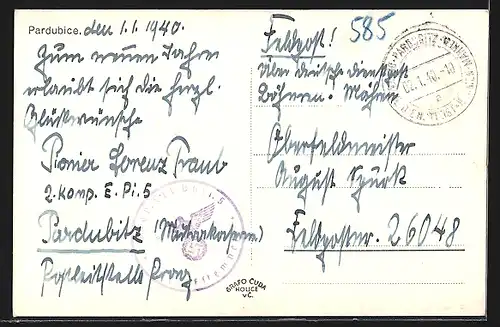 Pardubice, den 1.1.1940.
Zum neuen Jahre
erlaubt sich die herzl.
Glückwünsche
Pionier Lorenz Traub
2. Komp. E. Pi. 5
Pardubitz
Postleitstelle Prag
585
Feldpost!
Über deutsche dienstpost
Böhmen-Mähren
Oberfeldmeister
August
Feldpostnr. 26048
GRAFO ČUDA
HOLICE
V Č.